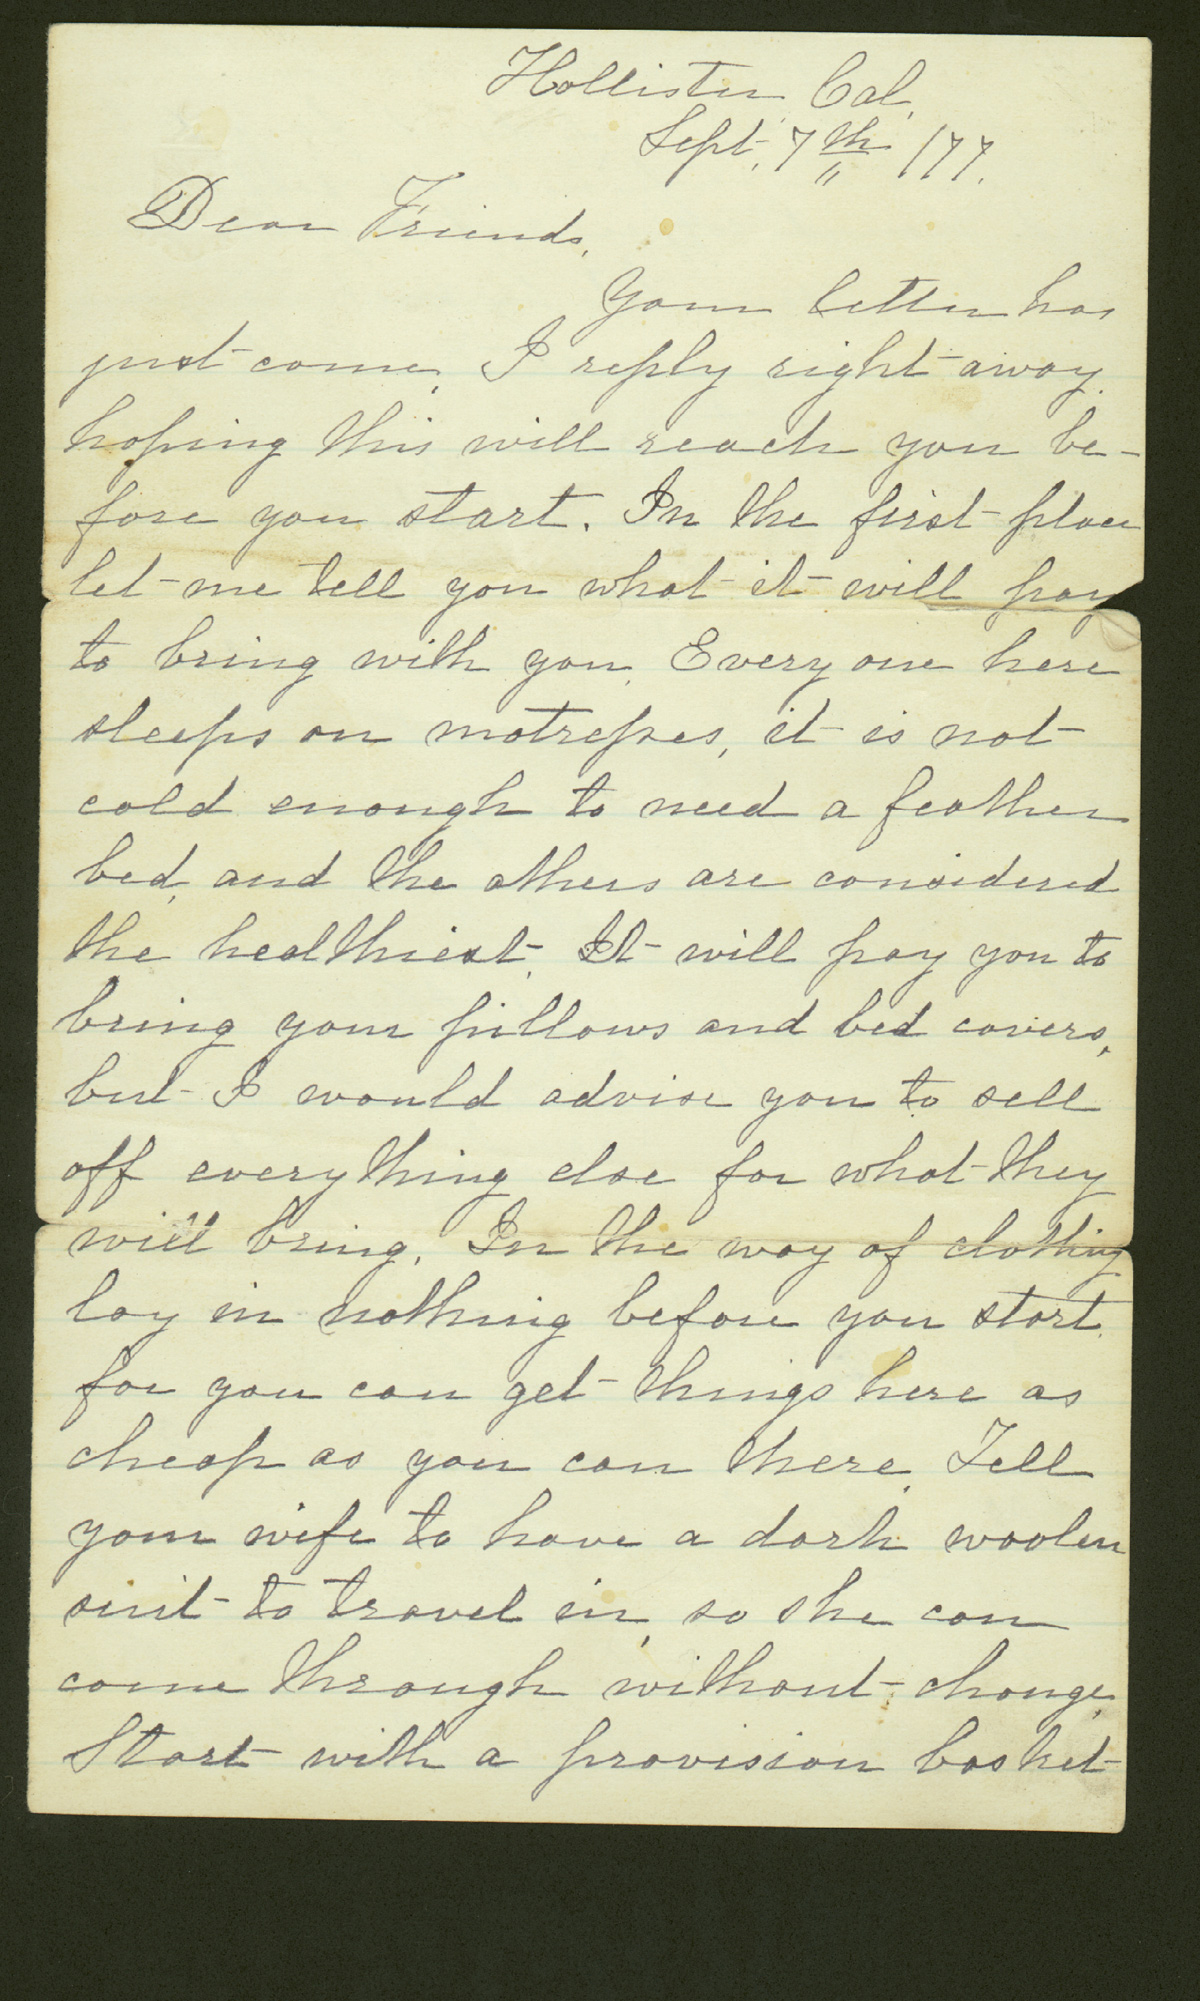 Hollister, Cal,
Sept, 7th /77.
Dear Friends,
Your letter has
just come, I reply right away,
hoping this will reach you be-
fore you start. In the first place
let me tell you what it will pay
to bring with you. Every one here
sleeps on matresses, it is not
cold enough to need a feather
bed, and the others are considered
the healthiest. It will pay you to
bring your pillows and bed covers,
but I would advise you to sell
off everything else for what they
will bring. In the way of clothing
lay in nothing before you start,
for you can get things here as
cheap as you can there. Tell
your wife to have a dark woolen
suit to travel in, so she can
come through without change.
Start with a provision basket